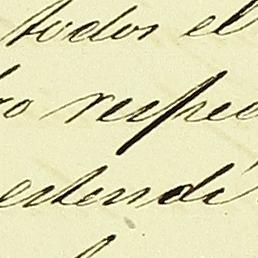 todos el
ro respec
estendi